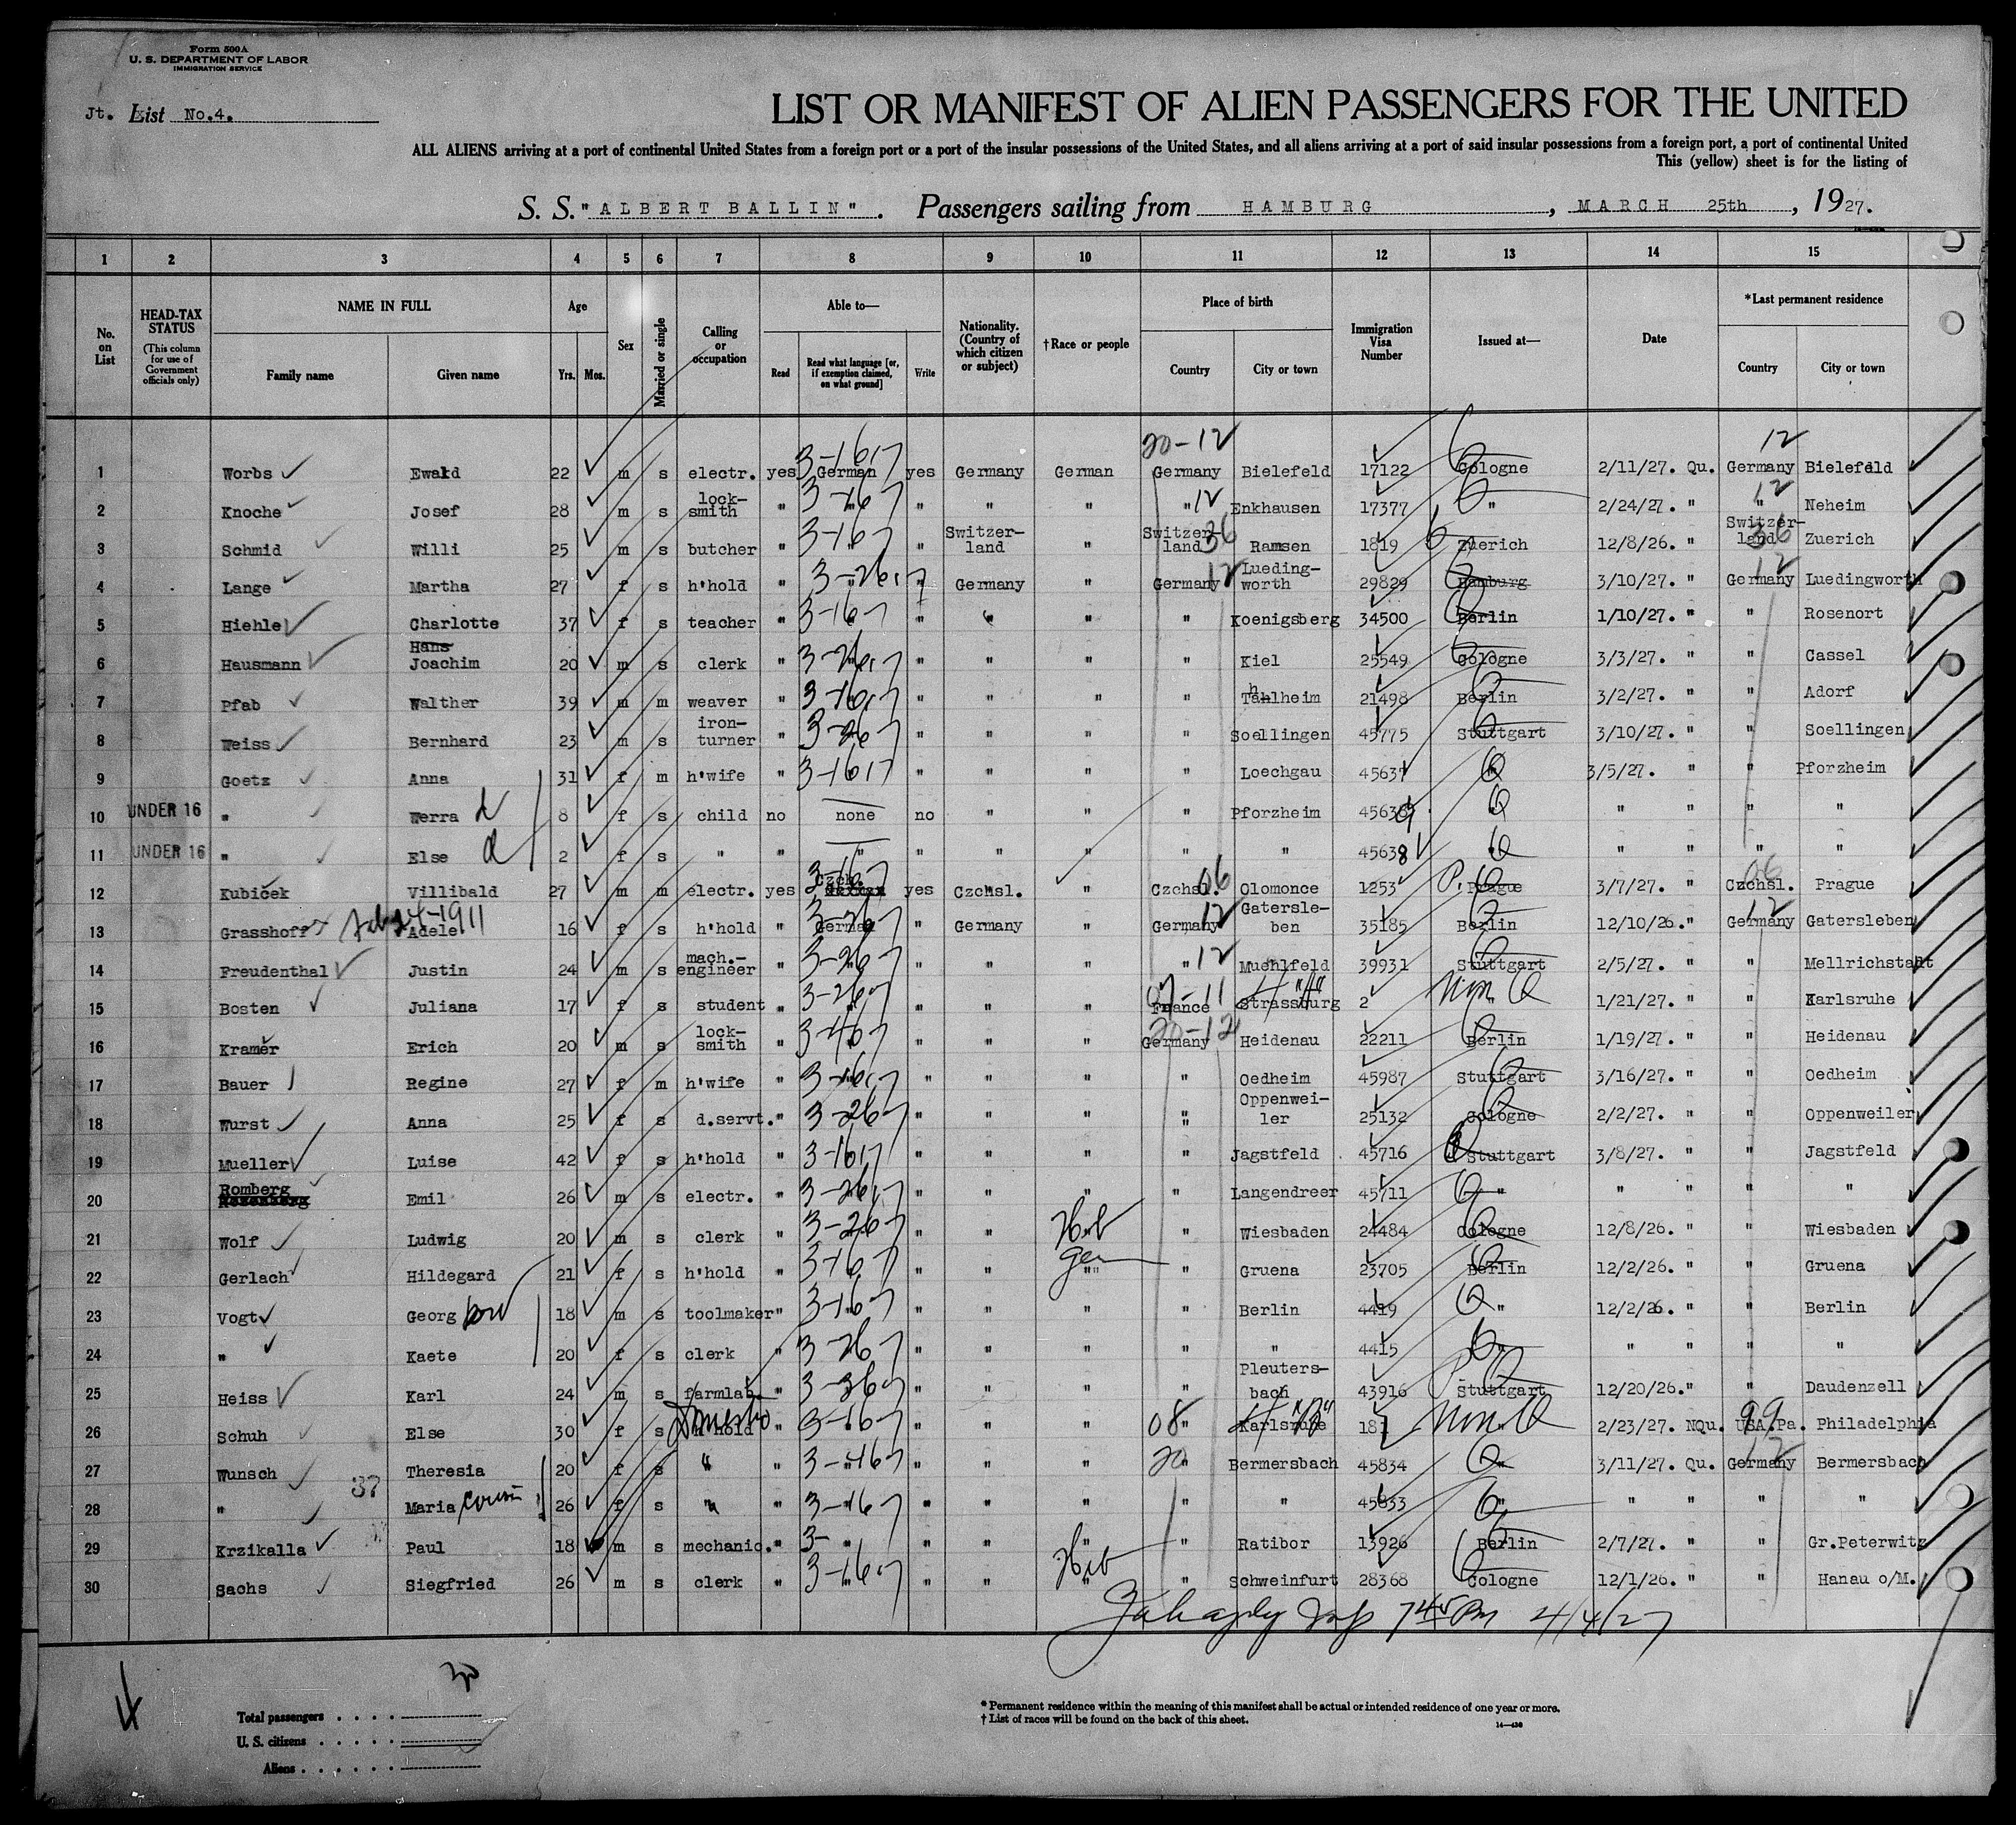 Form 500A
U. S. DEPARTMENT OF LABOR
IMMIGRATION SERVICE
Jt. List No.4.
LIST OR MANIFEST OF ALIEN PASSENGERS FOR THE UNITED
ALL ALIENS arriving at a port of continental United States from a foreign port or a port of the insular possessions of the United States, and all aliens arriving at a port of said insular possessions from a foreign port, a port of continental United
This (yellow) sheet is for the listing of
S. S. "ALBERT BALLIN". Passengers sailing from HAMBURG, MARCH 25th, 1927.
1 2 3 4 5 6 7 8 9 10 11 12 13 14 15
No. on List
HEAD-TAX STATUS
(This column for use of Government officials only)
NAME IN FULL
Family name Given name
Age
Yrs. Mos.
Sex
Married or single
Calling or occupation
Able to—
Read
Read what language [or, if exemption claimed, on what ground]
Write
Nationality. (Country of which citizen or subject)
†Race or people
Place of birth
Country City or town
Immigration Visa Number
Issued at—
Date
*Last permanent residence
Country City or town
20-12 12
1 Worbs Ewald 22 m s electr. yes German yes Germany German Germany Bielefeld 17122 Cologne 2/11/27. Qu. Germany Bielefeld
2 Knoche Josef 28 m s lock-smith " " " " " " 12 Enkhausen 17377 " 2/24/27. " " 12 Neheim
3 Schmid Willi 25 m s butcher " " " Switzer-land " Switzer-land 36 Ramsen 1819 Zuerich 12/8/26. " Switzer-land 36 Zuerich
4 Lange Martha 27 f s h'hold " " " Germany " Germany 12 Lueding-worth 29829 Hamburg 3/10/27. " Germany 12 Luedingworth
5 Hiehle Charlotte 37 f s teacher " " " " " " Koenigsberg 34500 Berlin 1/10/27. " " Rosenort
6 Hausmann Hans Joachim 20 m s clerk " " " " " " Kiel 25549 Cologne 3/3/27. " " Cassel
7 Pfab Walther 39 m m weaver " " " " " " Tahlheim 21498 Berlin 3/2/27. " " Adorf
8 Weiss Bernhard 23 m s iron-turner " " " " " " Soellingen 45775 Stuttgart 3/10/27. " " Soellingen
9 Goetz Anna 31 f m h'wife " " " " " " Loechgau 45637 " 3/5/27. " " Pforzheim
10 UNDER 16 " Werra d 8 f s child no none no " " " Pforzheim 45639 " " " " "
11 UNDER 16 " Else d 2 f s " " " " " " " " 45638 " " " " "
12 Kubiček Villibald 27 m m electr. yes Czch. yes Czchsl. " Czchsl. 06 Olomonce 1253 Prague 3/7/27. " Czchsl. 06 Prague
13 Grasshoff Adele 16 f s h'hold " German " Germany " Germany 12 Gatersle-ben 35185 Berlin 12/10/26. " Germany 12 Gatersleben
14 Freudenthal Justin 24 m s mach.-engineer " " " " " " 12 Muehlfeld 39931 Stuttgart 2/5/27. " " Mellrichstadt
15 Bosten Juliana 17 f s student " " " " " France Strassburg 2 Non Q 1/21/27. " " Karlsruhe
16 Kramer Erich 20 m s lock-smith " " " " " 20-12 Germany Heidenau 22211 Berlin 1/19/27. " " Heidenau
17 Bauer Regine 27 f m h'wife " " " " " " Oedheim 45987 Stuttgart 3/16/27. " " Oedheim
18 Wurst Anna 25 f s d.servt. " " " " " " Oppenwei-ler 25132 Cologne 2/2/27. " " Oppenweiler
19 Mueller Luise 42 f s h'hold " " " " " " Jagstfeld 45716 Stuttgart 3/8/27. " " Jagstfeld
20 Romberg Emil 26 m s electr. " " " " " " Langendreer 45711 " " " " "
21 Wolf Ludwig 20 m s clerk " " " " Heb " Wiesbaden 24484 Cologne 12/8/26. " " Wiesbaden
22 Gerlach Hildegard 21 f s h'hold " " " " Ger " Gruena 23705 Berlin 12/2/26. " " Gruena
23 Vogt Georg bro 18 m s toolmaker " " " " " " Berlin 4419 " 12/2/26. " " Berlin
24 " Kaete 20 f s clerk " " " " " " " 4415 " " " " "
25 Heiss Karl 24 m s farmlab. " " " " " " Pleuters-bach 43916 Stuttgart 12/20/26. " " Daudenzell
26 Schuh Else 30 f s h'hold Domestic " " " " " 08 " Karlsruhe 181 Non Q 2/23/27. NQu. USA.Pa. 99 Philadelphia
27 Wunsch Theresia 20 f s " " " " " " 20 " Bermersbach 45834 " 3/11/27. Qu. Germany 12 Bermersbach
28 " 37 Maria cousin 26 f s " " " " " " " " 45833 " " " " "
29 Krzikalla Paul 18 m s mechanic. " " " " " " Ratibor 13926 Berlin 2/7/27. " " Gr.Peterwitz
30 Sachs Siegfried 26 m s clerk " " " " Heb " Schweinfurt 28368 Cologne 12/1/26. " " Hanau o/M.
7 45 PM 4/4/27
30
Total passengers
U. S. citizens
Aliens
* Permanent residence within the meaning of this manifest shall be actual or intended residence of one year or more.
† List of races will be found on the back of this sheet.
14—430